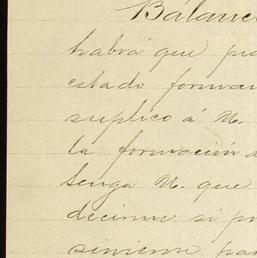 Balanc
habrá que pa
estado forma
suplico á U.
la formación a
tenga U. que
decirme si pu
sirvienme pa